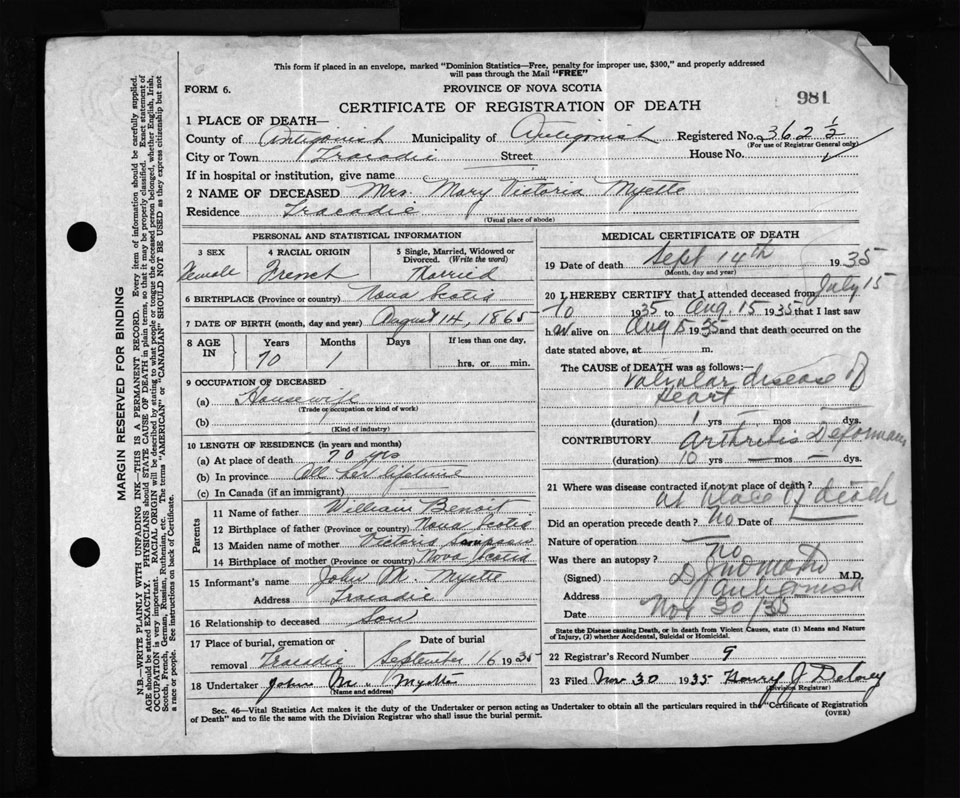 This form if placed in an envelope, marked "Dominion Statistics—Free, penalty for improper use, $300," and properly addressed
will pass through the Mail "FREE"
FORM 6.
PROVINCE OF NOVA SCOTIA
981
CERTIFICATE OF REGISTRATION OF DEATH
1 PLACE OF DEATH—
County of Antigonish Municipality of Antigonish Registered No. 362 ½
(For use of Registrar General only)
City or Town Tracadie Street House No.
If in hospital or institution, give name
2 NAME OF DECEASED Mrs. Mary Victoria Myette
Residence Tracadie
(Usual place of abode)
PERSONAL AND STATISTICAL INFORMATION
3 SEX 4 RACIAL ORIGIN 5 Single, Married, Widowed or Divorced. (Write the word)
Female French Married
6 BIRTHPLACE (Province or country) Nova Scotia
7 DATE OF BIRTH (month, day and year) August 14, 1865
8 AGE IN Years Months Days If less than one day,
70 1 hrs. or min.
9 OCCUPATION OF DECEASED
(a) Housewife
(Trade or occupation or kind of work)
(b)
(Kind of industry)
10 LENGTH OF RESIDENCE (in years and months)
(a) At place of death 70 yrs
(b) In province All her lifetime
(c) In Canada (if an immigrant)
Parents
11 Name of father William Benoit
12 Birthplace of father (Province or country) Nova Scotia
13 Maiden name of mother Victoria
14 Birthplace of mother (Province or country) Nova Scotia
15 Informant's name John M. Myette
Address Tracadie
16 Relationship to deceased Son
17 Place of burial, cremation or removal Tracadie Date of burial September 16 1935
18 Undertaker John M. Myette
(Name and address)
MEDICAL CERTIFICATE OF DEATH
19 Date of death Sept 14th 1935
(Month, day and year)
20 I HEREBY CERTIFY that I attended deceased from July 15
1935 to Aug. 15 1935 that I last saw
h alive on Aug 15 1935 and that death occurred on the
date stated above, at m.
The CAUSE OF DEATH was as follows:—
Valvular disease of
Heart
(duration) 1 yrs. — mos. — dys.
CONTRIBUTORY Arthritis Deformans
(duration) 10 yrs. — mos. — dys.
21 Where was disease contracted if not at place of death?
at place of death
Did an operation precede death? No Date of
Nature of operation
Was there an autopsy? No
(Signed) M.D.
Address Antigonish
Date Nov 30/35
State the Disease causing Death, or in death from Violent Causes, state (1) Means and Nature
of Injury, (2) whether Accidental, Suicidal or Homicidal.
22 Registrar's Record Number 9
23 Filed Nov 30 1935 Henry J Delorey
(Division Registrar)
Sec. 46—Vital Statistics Act makes it the duty of the Undertaker or person acting as Undertaker to obtain all the particulars required in the "Certificate of Registration
of Death" and to file the same with the Division Registrar who shall issue the burial permit.
(OVER)
MARGIN RESERVED FOR BINDING
N.B.—WRITE PLAINLY WITH UNFADING INK—THIS IS A PERMANENT RECORD. Every item of information should be carefully supplied.
AGE should be stated EXACTLY. PHYSICIANS should STATE CAUSE OF DEATH in plain terms, so that it may be properly classified. Exact statement of
OCCUPATION is very important. RACIAL ORIGIN will be described by stating to what people or tongue the deceased person belonged, whether English, Irish,
Scotch, French, German, Russian, Ruthenian, etc. The terms "AMERICAN" or "CANADIAN" SHOULD NOT BE USED as they express citizenship but not
a race or people. See instructions on back of Certificate.